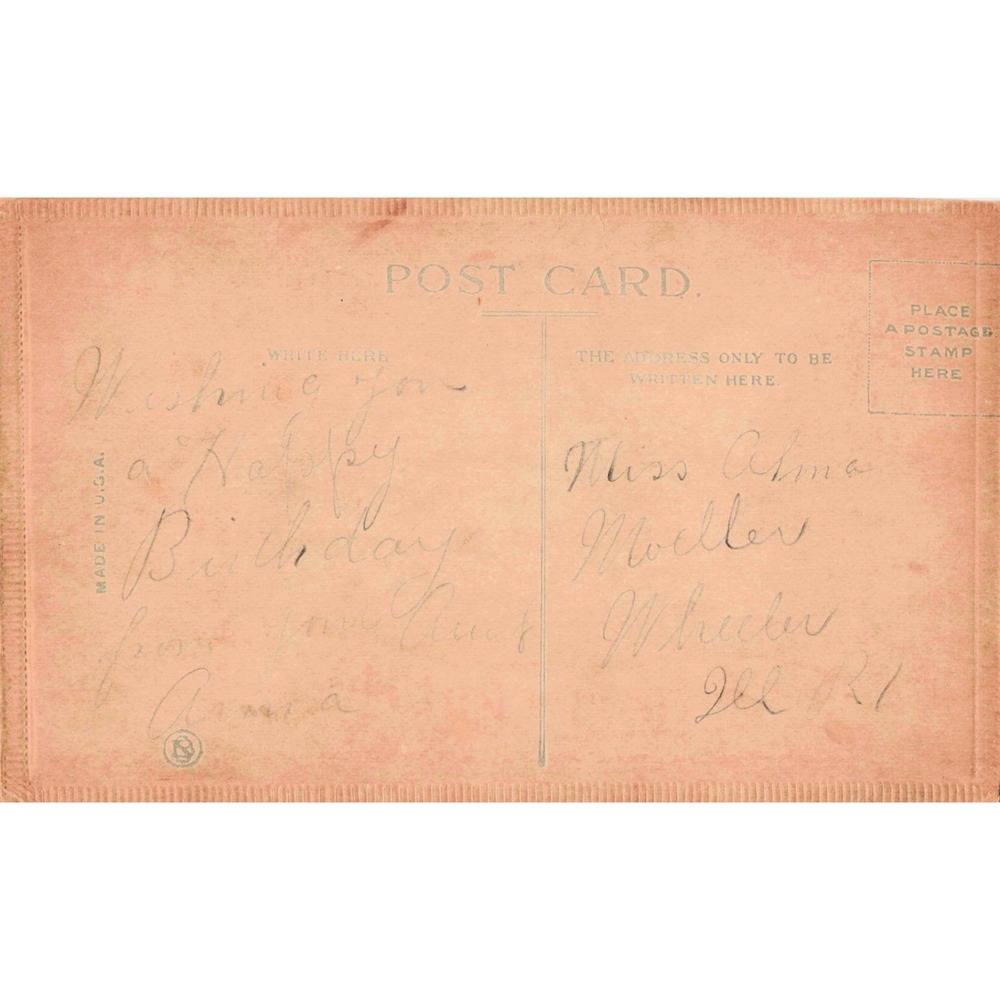 POST CARD.
WRITE HERE
Wishing you
a Happy
Birthday
from your Aunt
Anna
MADE IN U.S.A.
THE ADDRESS ONLY TO BE
WRITTEN HERE.
PLACE
A POSTAGE
STAMP
HERE
Miss Alma
Moeller
Wheeler
Ill R1